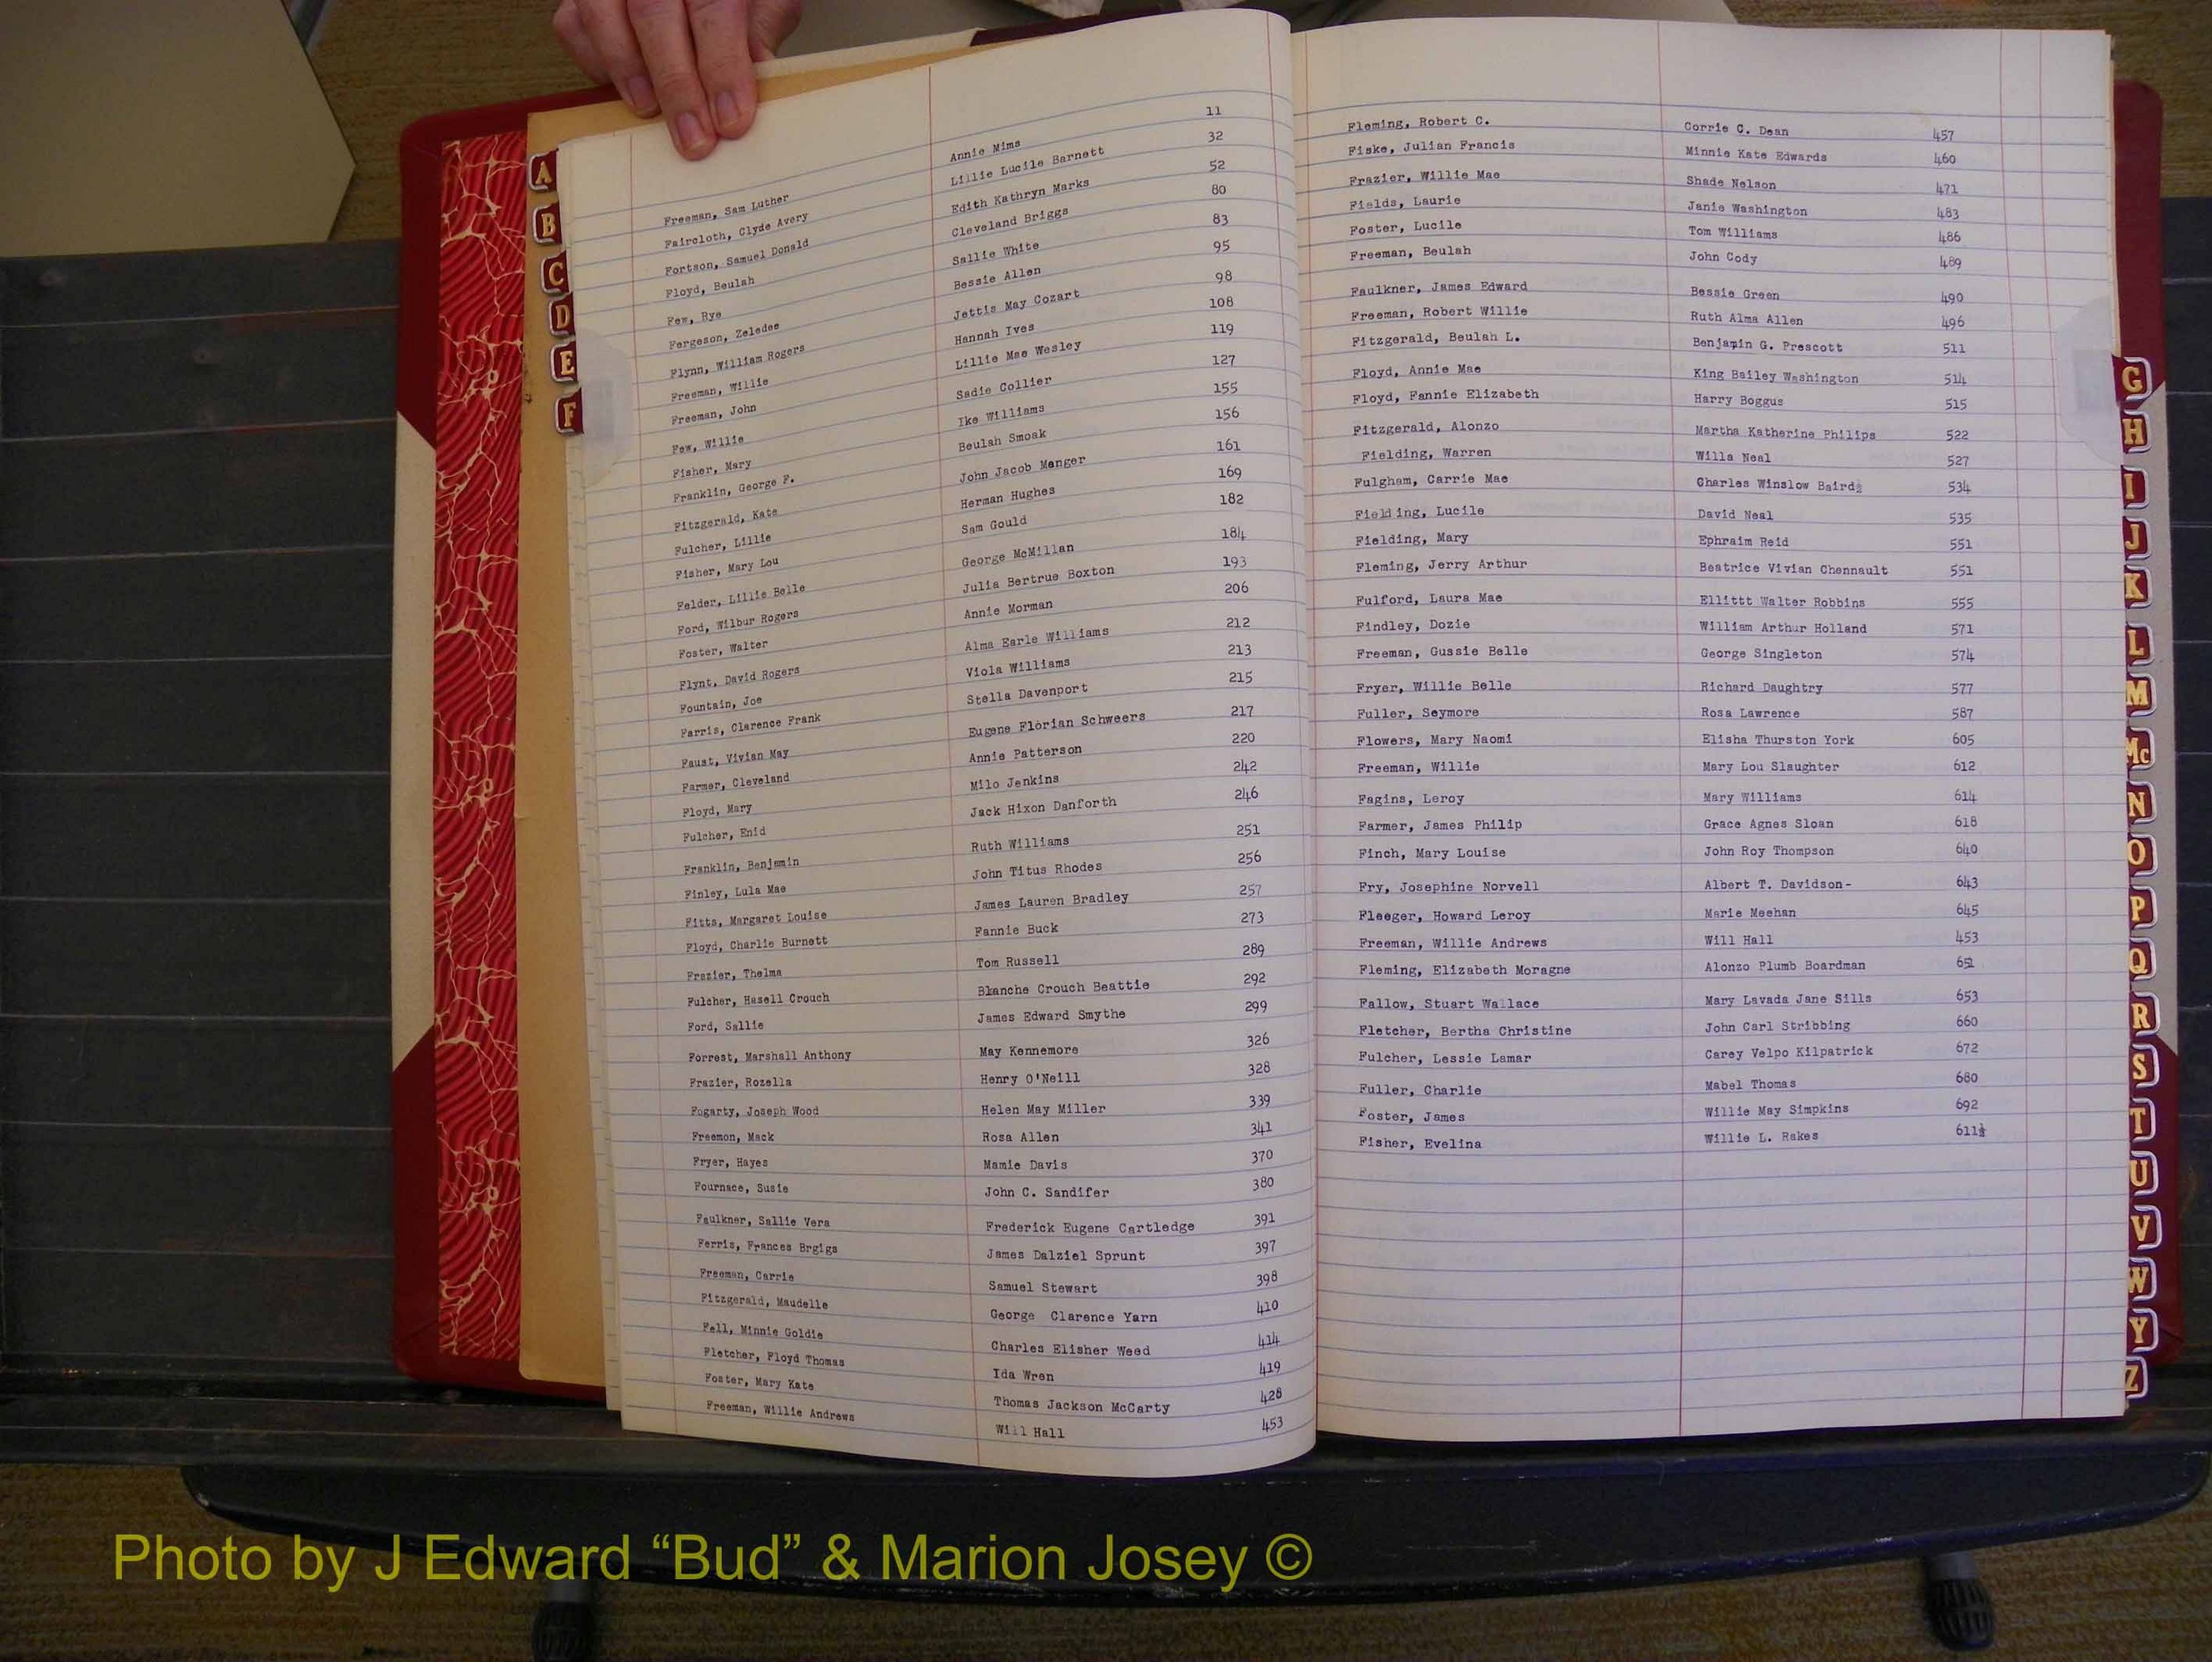 Freeman, Sam Luther Annie Mims 11
Faircloth, Clyde Avery Lillie Lucile Barnett 32
Fortson, Samuel Donald Edith Kathryn Marks 52
Floyd, Beulah Cleveland Briggs 80
Few, Rye Sallie White 83
Fergeson, Zeledee Bessie Allen 95
Flynn, William Rogers Jettis May Cozart 98
Freeman, Willie Hannah Ives 108
Freeman, John Lillie Mae Wesley 119
Few, Willie Sadie Collier 127
Fisher, Mary Ike Williams 155
Franklin, George F. Beulah Smoak 156
Fitzgerald, Kate John Jacob Manger 161
Fulcher, Lillie Herman Hughes 169
Fisher, Mary Lou Sam Gould 182
Felder, Lillie Belle George McMillan 184
Ford, Wilbur Rogers Julia Bertrue Boxton 193
Foster, Walter Annie Morman 206
Flynt, David Rogers Alma Earle Williams 212
Fountain, Joe Viola Williams 213
Farris, Clarence Frank Stella Davenport 215
Faust, Vivian May Eugene Florian Schweers 217
Farmer, Cleveland Annie Patterson 220
Floyd, Mary Milo Jenkins 242
Fulcher, Enid Jack Hixon Danforth 246
Franklin, Benjamin Ruth Williams 251
Finley, Lula Mae John Titus Rhodes 256
Fitts, Margaret Louise James Lauren Bradley 257
Floyd, Charlie Burnett Fannie Buck 273
Frazier, Thelma Tom Russell 289
Fulcher, Hasell Crouch Blanche Crouch Beattie 292
Ford, Sallie James Edward Smythe 299
Forrest, Marshall Anthony May Kennemore 326
Frazier, Rozella Henry O'Neill 328
Fogarty, Joseph Wood Helen May Miller 339
Freemon, Mack Rosa Allen 341
Fryer, Hayes Mamie Davis 370
Fournace, Susie John C. Sandifer 380
Faulkner, Sallie Vera Frederick Eugene Cartledge 391
Ferris, Frances Brgigs James Dalziel Sprunt 397
Freeman, Carrie Samuel Stewart 398
Fitzgerald, Maudelle George Clarence Yarn 410
Fell, Minnie Goldie Charles Elisher Weed 414
Fletcher, Floyd Thomas Ida Wren 419
Foster, Mary Kate Thomas Jackson McCarty 428
Freeman, Willie Andrews Will Hall 453
A
B
C
D
E
F
Fleming, Robert C. Corrie C. Dean 457
Fiske, Julian Francis Minnie Kate Edwards 460
Frazier, Willie Mae Shade Nelson 471
Fields, Laurie Janie Washington 483
Foster, Lucile Tom Williams 486
Freeman, Beulah John Cody 489
Faulkner, James Edward Bessie Green 490
Freeman, Robert Willie Ruth Alma Allen 496
Fitzgerald, Beulah L. Benjamin G. Prescott 511
Floyd, Annie Mae King Bailey Washington 514
Floyd, Fannie Elizabeth Harry Boggus 515
Fitzgerald, Alonzo Martha Katherine Philips 522
Fielding, Warren Willa Neal 527
Fulgham, Carrie Mae Charles Winslow Baird 534
Fielding, Lucile David Neal 535
Fielding, Mary Ephraim Reid 551
Fleming, Jerry Arthur Beatrice Vivian Chennault 551
Fulford, Laura Mae Ellittt Walter Robbins 555
Findley, Dozie William Arthur Holland 571
Freeman, Gussie Belle George Singleton 574
Fryer, Willie Belle Richard Daughtry 577
Fuller, Seymore Rosa Lawrence 587
Flowers, Mary Naomi Elisha Thurston York 605
Freeman, Willie Mary Lou Slaughter 612
Fagins, Leroy Mary Williams 614
Farmer, James Philip Grace Agnes Sloan 618
Finch, Mary Louise John Roy Thompson 640
Fry, Josephine Norvell Albert T. Davidson- 643
Fleeger, Howard Leroy Marie Meehan 645
Freeman, Willie Andrews Will Hall 453
Fleming, Elizabeth Moragne Alonzo Plumb Boardman
Fallow, Stuart Wallace Mary Lavada Jane Sills 653
Fletcher, Bertha Christine John Carl Stribbing 660
Fulcher, Lessie Lamar Carey Velpo Kilpatrick 672
Fuller, Charlie Mabel Thomas 680
Foster, James Willie May Simpkins 692
Fisher, Evelina Willie L. Rakes 611½
G
H
I
J
K
L
M
Mc
N
O
P
Q
R
S
T
U
V
W
Y
Z
Photo by J Edward “Bud” & Marion Josey ©